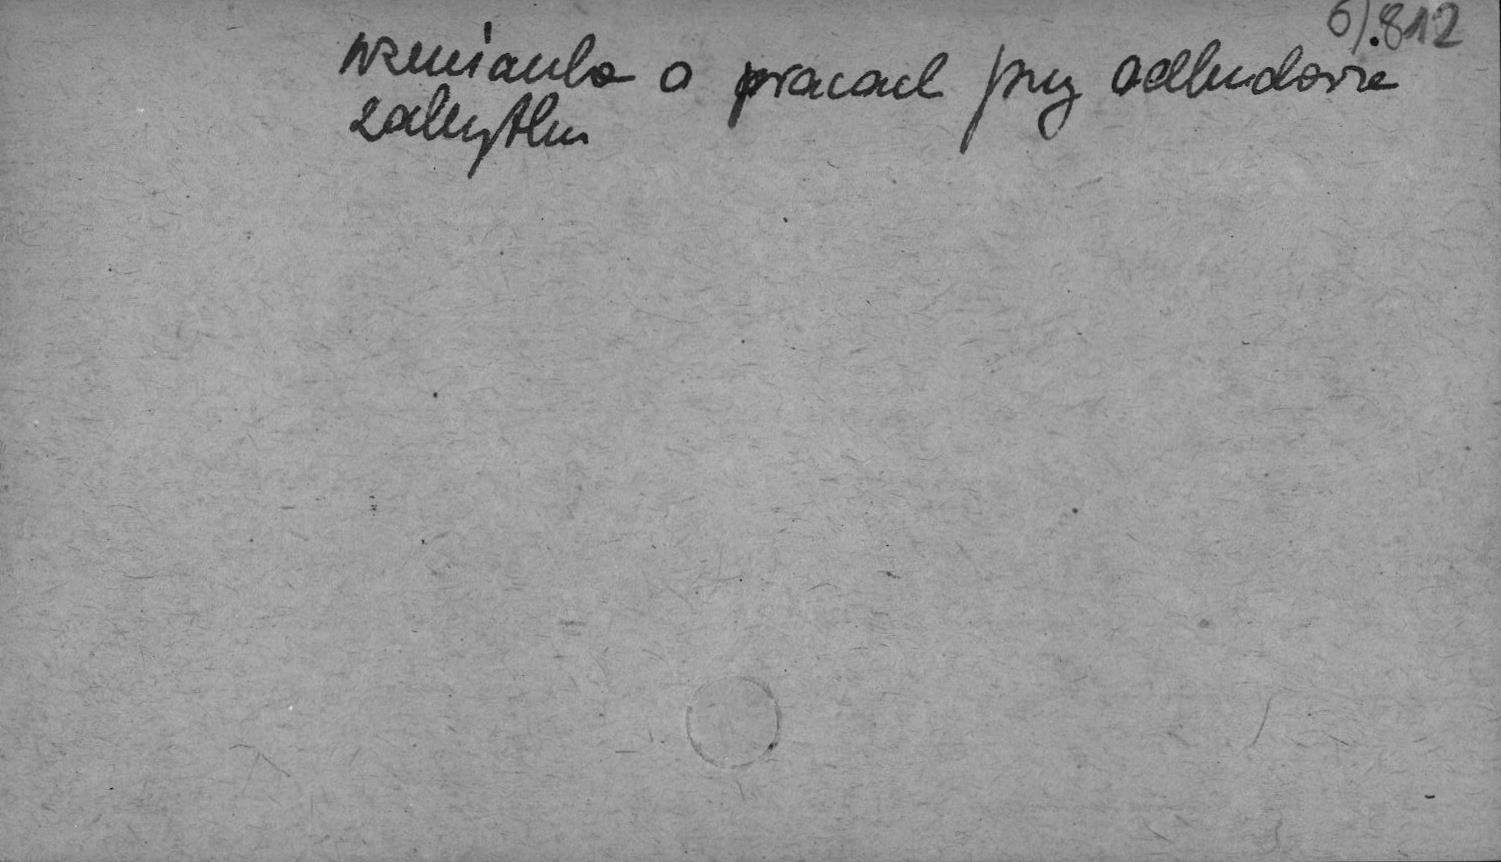 6).812
wzmianka o pracach przy odbudowie
zabytku